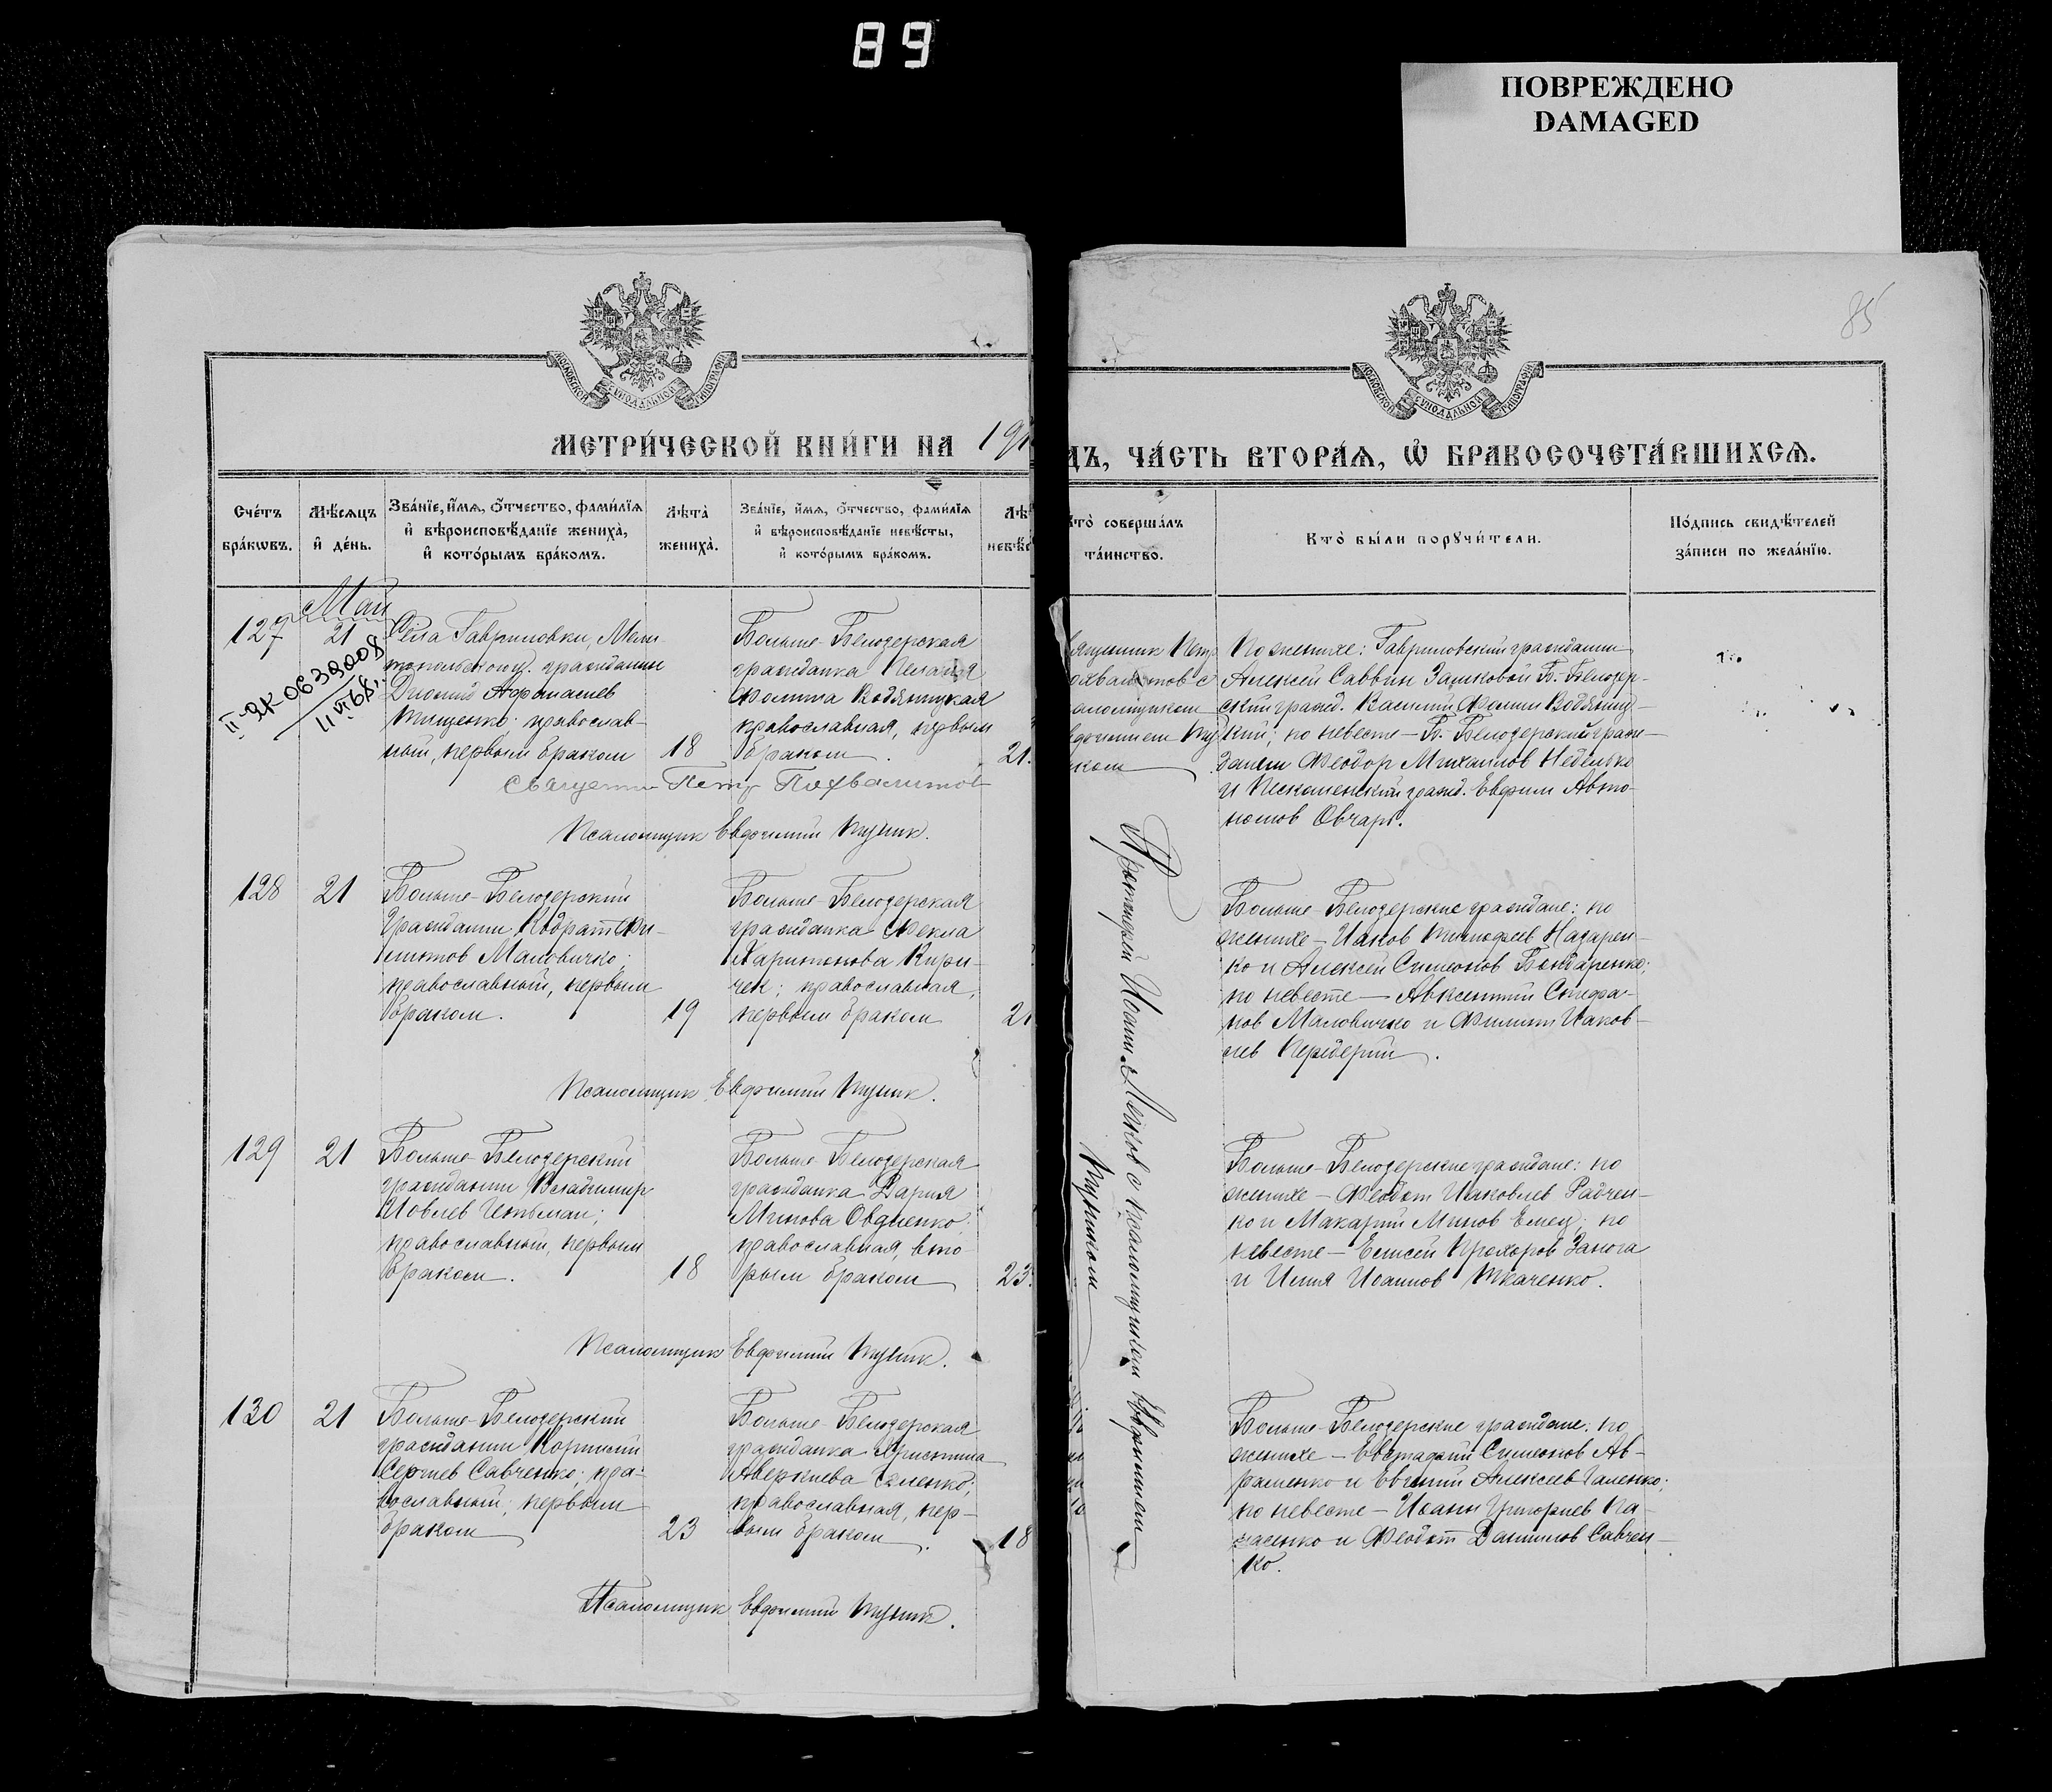 89
ПОВРЕЖДЕНО
DAMAGED
85
МОСКОВСКОЙ СѴНОДАЛЬНОЙ ТИПОГРАФІИ
МОСКОВСКОЙ СѴНОДАЛЬНОЙ ТИПОГРАФІИ
МЕТРИ́ЧЕСКОЙ КНИ́ГИ НА 191
ДЪ, ЧА́СТЬ ВТОРА́Ѧ, Ѽ БРАКОСОЧЕТА́ВШИХСѦ.
Сче́тъ бра́кѡвъ.
Мѣ́сѧцъ и҆ де́нь.
Зва́нїе, и҆́мѧ, ѻ҆́тчество, фами́лїѧ и҆ вѣроисповѣ́данїе женихà, и҆ кото́рымъ бра́комъ.
Лѣ́та женихà.
Зва́нїе, и҆́мѧ, ѻ҆́тчество, фами́лїѧ и҆ вѣроисповѣ́данїе невѣ́сты, и҆ кото́рымъ бра́комъ.
Лѣ невѣс
кто̀ соверша́лъ та́инство.
Кто̀ бы́ли порꙋчи́тели.
По́дпись свидѣ́телей за́писи по жела́нїю.
Май
127
21
II-ЯК 0639008
11 VI 68 г.
Села Гавриловки, Мели-
топольского у. гражданин
Диомид Афанасиев
Тищенко; православ-
ный, первым браком
18
Больше-Белозерская
гражданка Пелагия
Фомина Водяницкая
православная, первым
браком.
21.
Священник Петр Похвалитов
Псаломщик Евфимий Пуник.
По женихе: Гавриловский гражданин
Алексей Саввин Зашковой Б.-Белозер-
ский гражд. Василий Фомин Водяниц-
кий; по невесте — Б.-Белозерский граж-
данин Феодор Михаилов Неделько
и гражд. Евфим Авто-
номов Овчар.
128
21
Больше-Белозерский
гражданин Кодрат Фи-
липпов Маловичко;
православный, первым
браком.
19
Больше-Белозерская
гражданка Фекла
Харитонова Кири-
чек; православная,
первым браком
21
Псаломщик Евфимий Пуник.
Больше-Белозерские граждане: по
женихе — Иаков Тимофеев Назарен-
ко и Алексей Симеонов Бондаренко;
по невесте — Авксентий Стефа-
нов Маловичко и Филипп Иаков-
лев Передерий.
129
21
Больше-Белозерский
гражданин Владимир
Иовлев
православный, первым
браком.
18
Больше-Белозерская
гражданка Дария
Минова Овдиенко
православная, вто-
рым браком
23.
Псаломщик Евфимий Пуник.
Больше-Белозерские граждане: по
женихе — Феодот Иаковлев Радчен-
ко и Макарий Минов Емец; по
невесте — Елисей Прохоров Занога
и Илия Иоаннов Ткаченко.
130
21
Больше-Белозерский
гражданин Корнилий
Сергиев Савченко; пра-
вославный; первым
браком
23
Больше-Белозерская
гражданка Христина
Аверкиева
православная, пер-
вым браком.
18
Псаломщик Евфимий Пуник.
Больше-Белозерские граждане: по
женихе — Евстафий Симеонов Ав-
раменко и Алексеев Галенко;
по невесте — Иоанн Григориев
и Феодот Даниилов Савчен-
ко.
Протоиерей Иоанн с псаломщиком Евфимием
Пуником